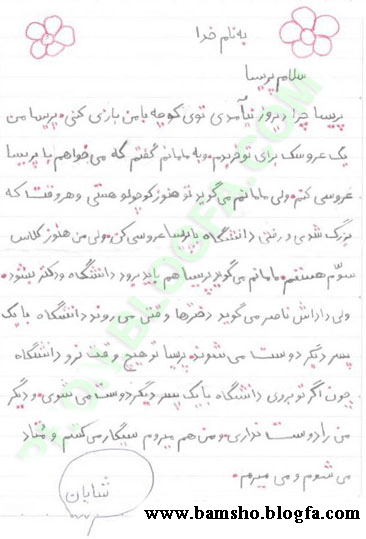 به نام خدا
سلام پریسا
پریسا چرا دیروز نیآمدی توی کوچه با من بازی کنی. پریسا من
یک عروسک برای تو خریدم. و به مامانم گفتم که می‌خواهم با پریسا
عروسی کنم. ولی مامانم می‌گوید تو هنوز کوچولو هستی و هر وقت که
بزرگ شدی و رفتی دانشگاه با پریسا عروسی کن. ولی من هنوز کلاس
سوّم هستم. مامانم می‌گوید پریسا هم باید برود دانشگاه و دکتر بشود.
ولی داداش ناصر می‌گوید دخترها وقتی می‌روند دانشگاه با یک
پسر دیگر دوست می‌شوند. پریسا تو هیچ وقت نرو دانشگاه
چون اگر تو بروی دانشگاه با یک پسر دیگر دوست می‌شوی. و دیگر
من را دوست نداری. و من هم میروم سیگار می‌کشم و مُتاد
می‌شوم و می‌میرم.
شایان
www.bamsho.blogfa.com